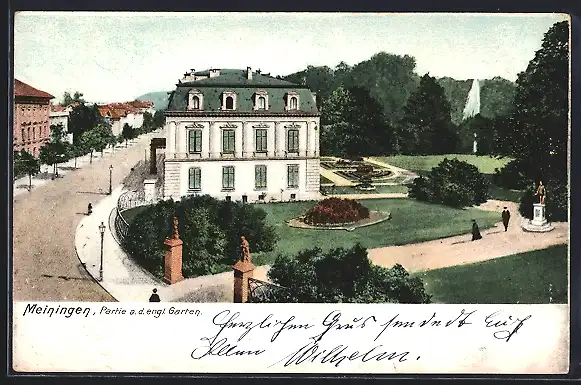 Meiningen, Partie a.d. engl. Garten.
Herzlichen Grus sendet Euch
Allen Wilhelm.